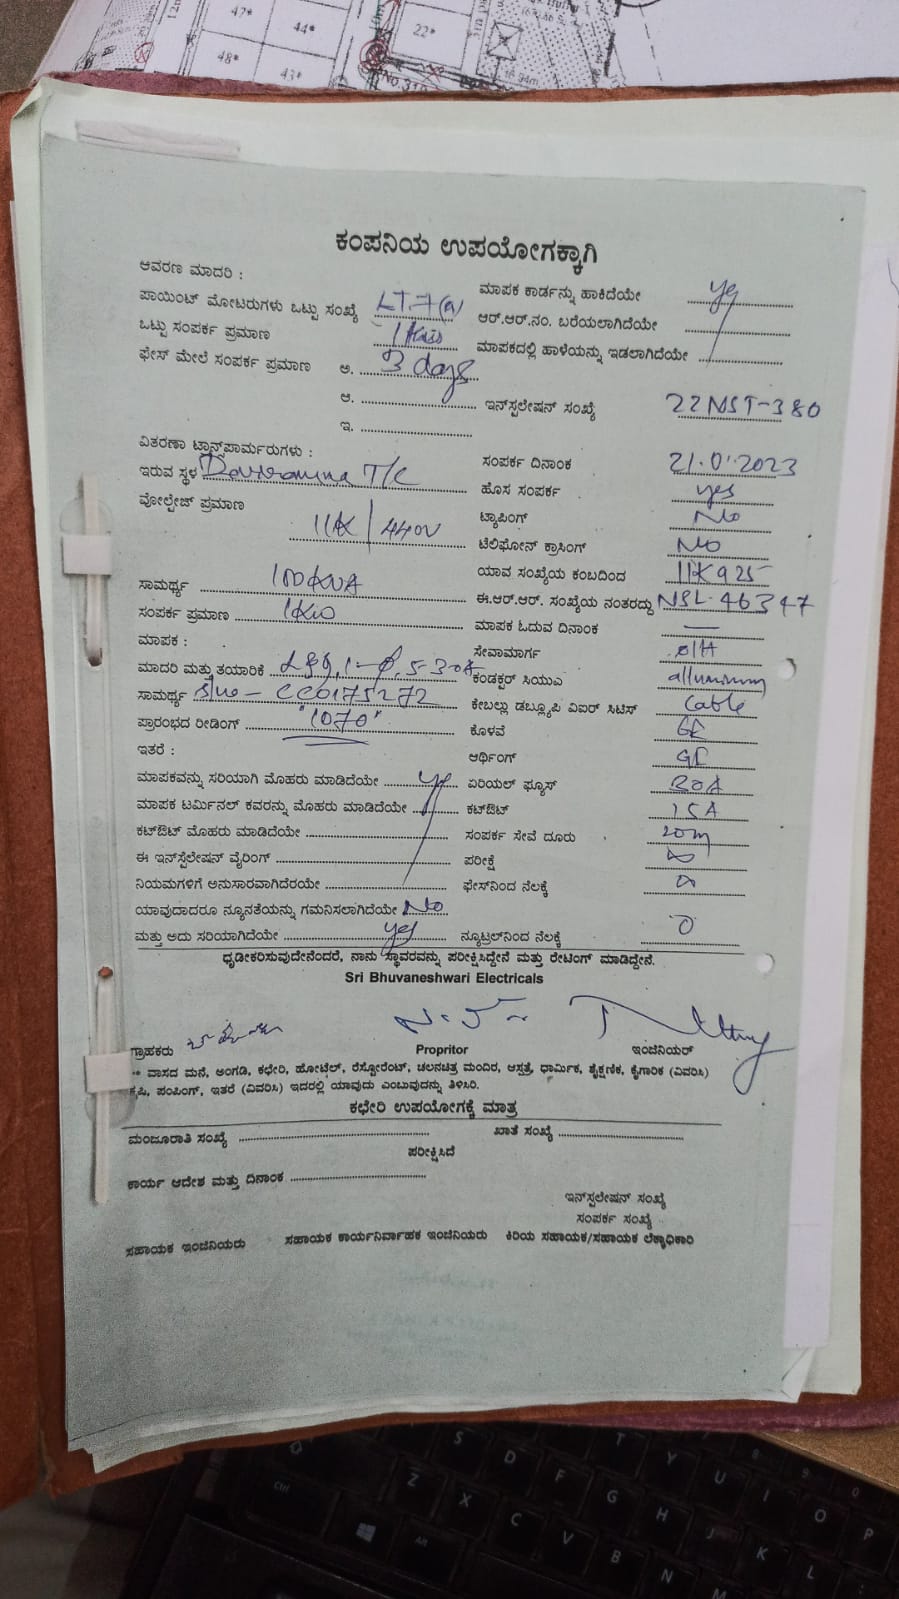 47*
44*
22*
48*
43*
ಕಂಪನಿಯ ಉಪಯೋಗಕ್ಕಾಗಿ
ಆವರಣ ಮಾದರಿ :
ಮಾಪಕ ಕಾರ್ಡನ್ನು ಹಾಕಿದೆಯೇ yes
ಪಾಯಿಂಟ್ ಮೋಟರುಗಳು ಒಟ್ಟು ಸಂಖ್ಯೆ LT-7(a)
ಆರ್.ಆರ್.ನಂ. ಬರೆಯಲಾಗಿದೆಯೇ
ಒಟ್ಟು ಸಂಪರ್ಕ ಪ್ರಮಾಣ 1Kw
ಮಾಪಕದಲ್ಲಿ ಹಾಳೆಯನ್ನು ಇಡಲಾಗಿದೆಯೇ
ಫೇಸ್ ಮೇಲೆ ಸಂಪರ್ಕ ಪ್ರಮಾಣ ಅ. 3 days
ಆ. ಇನ್‌ಸ್ಟಲೇಷನ್ ಸಂಖ್ಯೆ 22NST-380
ಇ.
ವಿತರಣಾ ಟ್ರಾನ್ಸ್‌ಫಾರ್ಮರುಗಳು : ಸಂಪರ್ಕ ದಿನಾಂಕ 21.01.2023
ಇರುವ ಸ್ಥಳ T/C ಹೊಸ ಸಂಪರ್ಕ yes
ವೋಲ್ಟೇಜ್ ಪ್ರಮಾಣ ಟ್ಯಾಪಿಂಗ್ No
11K/440V ಟೆಲಿಫೋನ್ ಕ್ರಾಸಿಂಗ್ No
ಸಾಮರ್ಥ್ಯ 100KVA ಯಾವ ಸಂಖ್ಯೆಯ ಕಂಬದಿಂದ 11K925
ಸಂಪರ್ಕ ಪ್ರಮಾಣ 1KW ಈ.ಆರ್.ಆರ್. ಸಂಖ್ಯೆಯ ನಂತರದ್ದು NSL-46347
ಮಾಪಕ : ಮಾಪಕ ಓದುವ ದಿನಾಂಕ —
ಮಾದರಿ ಮತ್ತು ತಯಾರಿಕೆ L&G, 1-φ, 5-30A ಸೇವಾಮಾರ್ಗ O/H
ಸಾಮರ್ಥ್ಯ S/no - CC0175272 ಕಂಡಕ್ಟರ್ ಸಿಯುಎ alluminium
ಪ್ರಾರಂಭದ ರೀಡಿಂಗ್ "1070" ಕೇಬಲ್ಲು ಡಬ್ಲ್ಯೂಪಿ ವಿಐರ್ ಸಿಟಿಸ್ Cable
ಕೊಳವೆ GI
ಇತರೆ : ಅರ್ಥಿಂಗ್ GI
ಮಾಪಕವನ್ನು ಸರಿಯಾಗಿ ಮೊಹರು ಮಾಡಿದೆಯೇ yes ಏರಿಯಲ್ ಫ್ಯೂಸ್ 30A
ಮಾಪಕ ಟರ್ಮಿನಲ್ ಕವರನ್ನು ಮೊಹರು ಮಾಡಿದೆಯೇ ಕಟ್‌ಔಟ್ 15A
ಕಟ್‌ಔಟ್ ಮೊಹರು ಮಾಡಿದೆಯೇ ಸಂಪರ್ಕ ಸೇವೆ ದೂರು 20m
ಈ ಇನ್‌ಸ್ಟೆಲೇಷನ್ ವೈರಿಂಗ್ ಪರೀಕ್ಷೆ ∞
ನಿಯಮಗಳಿಗೆ ಅನುಸಾರವಾಗಿದೆರಯೇ ಫೇಸ್‌ನಿಂದ ನೆಲಕ್ಕೆ
ಯಾವುದಾದರೂ ನ್ಯೂನತೆಯನ್ನು ಗಮನಿಸಲಾಗಿದೆಯೇ No
ಮತ್ತು ಅದು ಸರಿಯಾಗಿದೆಯೇ yes ನ್ಯೂಟ್ರಲ್‌ನಿಂದ ನೆಲಕ್ಕೆ 0
ಧೃಡೀಕರಿಸುವುದೇನೆಂದರೆ, ನಾನು ಸ್ಥಾವರವನ್ನು ಪರೀಕ್ಷಿಸಿದ್ದೇನೆ ಮತ್ತು ರೇಟಿಂಗ್ ಮಾಡಿದ್ದೇನೆ.
Sri Bhuvaneshwari Electricals
ಗ್ರಾಹಕರು Propritor ಇಂಜಿನಿಯರ್
** ವಾಸದ ಮನೆ, ಅಂಗಡಿ, ಕಛೇರಿ, ಹೋಟೆಲ್, ರೆಸ್ಟೋರೆಂಟ್, ಚಲನಚಿತ್ರ ಮಂದಿರ, ಆಸ್ಪತ್ರೆ, ಧಾರ್ಮಿಕ, ಶೈಕ್ಷಣಿಕ, ಕೈಗಾರಿಕ (ವಿವರಿಸಿ)
ಕೃಷಿ, ಪಂಪಿಂಗ್, ಇತರೆ (ವಿವರಿಸಿ) ಇದರಲ್ಲಿ ಯಾವುದು ಎಂಬುವುದನ್ನು ತಿಳಿಸಿರಿ.
ಕಛೇರಿ ಉಪಯೋಗಕ್ಕೆ ಮಾತ್ರ
ಮಂಜೂರಾತಿ ಸಂಖ್ಯೆ ಖಾತೆ ಸಂಖ್ಯೆ
ಪರೀಕ್ಷಿಸಿದೆ
ಕಾರ್ಯ ಆದೇಶ ಮತ್ತು ದಿನಾಂಕ
ಇನ್‌ಸ್ಟಲೇಷನ್ ಸಂಖ್ಯೆ
ಸಂಪರ್ಕ ಸಂಖ್ಯೆ
ಸಹಾಯಕ ಇಂಜಿನಿಯರು ಸಹಾಯಕ ಕಾರ್ಯನಿರ್ವಾಹಕ ಇಂಜಿನಿಯರು ಕಿರಿಯ ಸಹಾಯಕ/ಸಹಾಯಕ ಲೆಕ್ಕಾಧಿಕಾರಿ